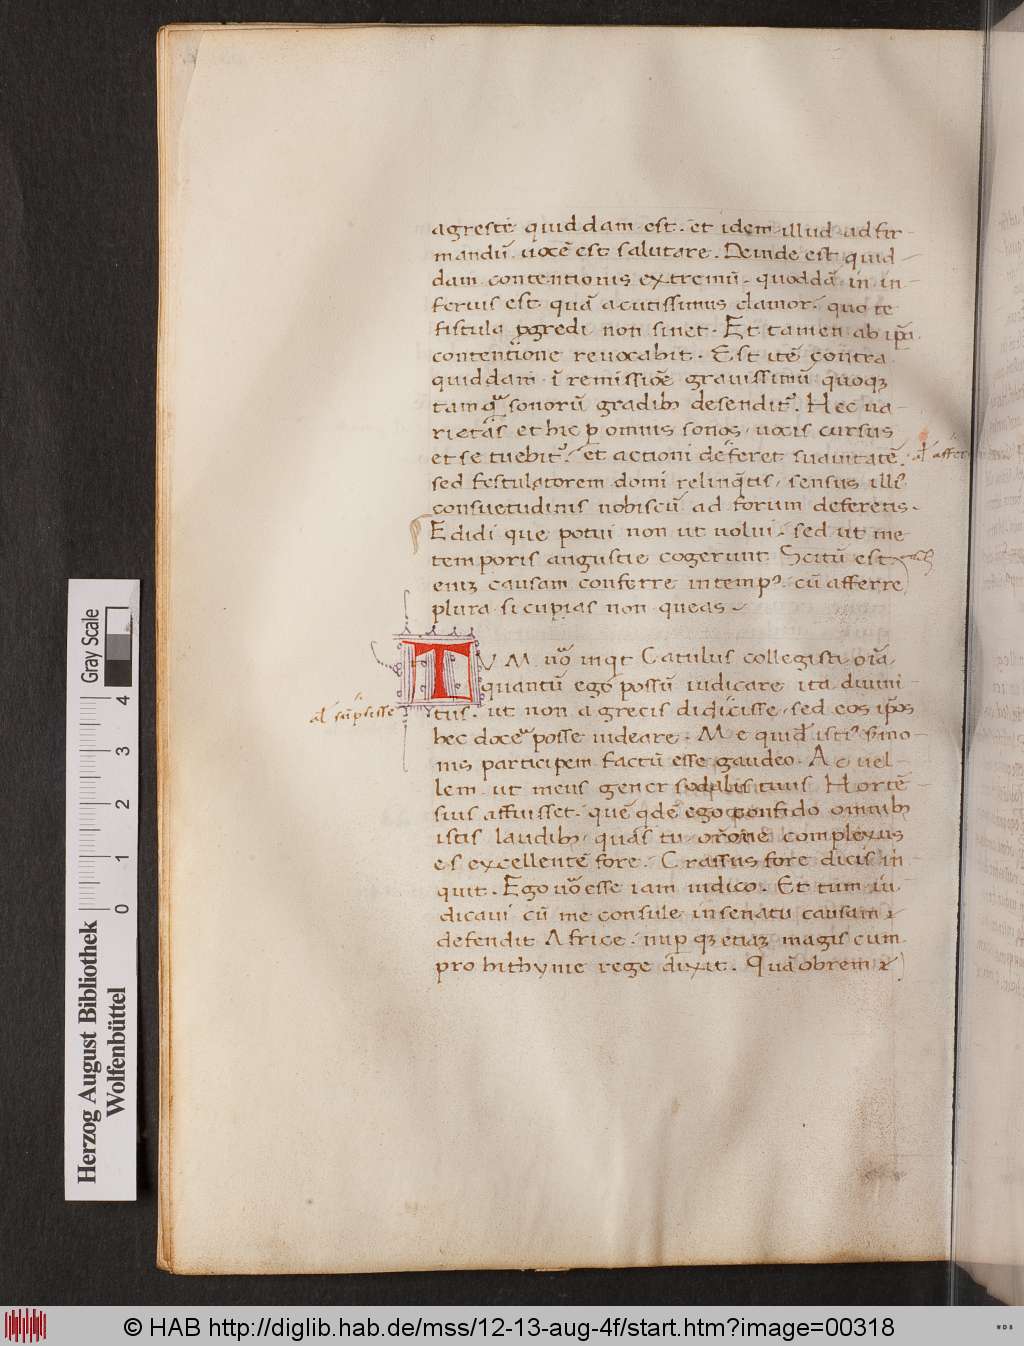 agrestē quiddam est. et idem illud ad fir-
mandū uocē est salutare. Deinde est quid-
dam contentionis extremū. quoddā in in-
ferius est quā acutissimus clamor. quo te
fistula ꝓgredi non sinet. Et tamen ab ip̄a
contentione reuocabit. Est itē contra
quiddam ī remissiōe grauissimū quoqꝫ
tamqᷓ sonorū gradibꝫ desendit᷑. Hec ua-
rietas et hic ꝑ omnis sonos uocis cursus
et se tuebit᷑. et actioni deferet suauitatē. al' affert
sed festulatorem domi relinq̄tis, sensus illi᷑
consuetudinis nobiscū ad forum deferetis.
Edidi que potui non ut uolui. sed ut me
temporis angustie cogerunt Scitū est
eniꝫ causam conferre in temp᷒. cū afferre
plura si cupias non queas
TVM u͛o inqͥt Catulus collegisti oīa,
quantū ego possū iudicare ita diuini-
al' sūpsisse
tus. ut non a grecis didicisse, sed eos ip̄os
hec docē posse uideare. Me quid isti᷑ smo-
nis participem factū esse gaudeo. Ac uel-
lem ut meus gener sodalis tuus Hortē
sius affuisset. quē qdē ego confido omnibꝫ
istis laudibꝫ quas tu orōne complexus
es excellentē fore. Crassus fore dicis in
quit. Ego u͛o esse iam iudico. Et tum iu-
dicaui cū me consule in senatu causam
defendit Africe. nup qꝫ etiaꝫ magis cum
pro bithynie rege dixit. Quāobrem
Herzog August Bibliothek
Wolfenbüttel
0 1 2 3 4
Gray Scale
© HAB http://diglib.hab.de/mss/12-13-aug-4f/start.htm?image=00318